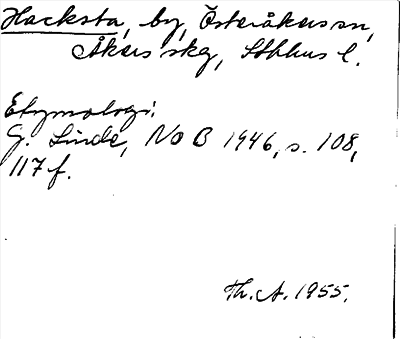 Hacksta, by, Österåkers sn,
Åkers skg, Sthlms l.
Etymologi:
G. Linde, NoB 1946, s. 108,
117 f.
Th. A. 1955.